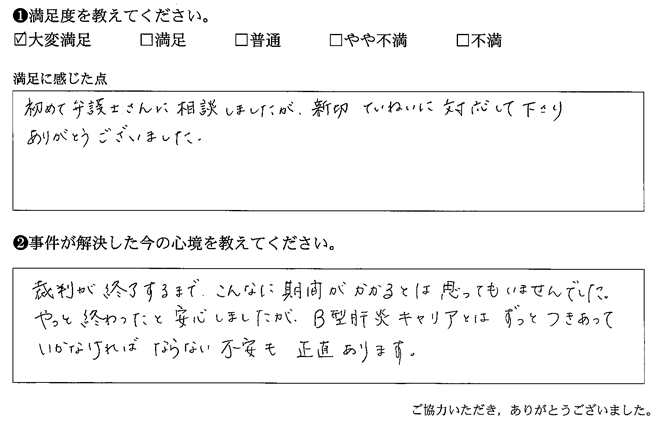 ❶満足度を教えてください。
☑大変満足 □満足 □普通 □やや不満 □不満
満足に感じた点
初めて弁護士さんに相談しましたが、新切 ていねいに対応して下さり
ありがとうございました。
❷事件が解決した今の心境を教えてください。
裁判が終了するまで、こんなに期間がかかるとは思ってもいませんでした。
やっと終わったと安心しましたが、B型肝炎キャリアとは ずっとつきあって
いかなければ ならない 不安も 正直あります。
ご協力いただき，ありがとうございました。